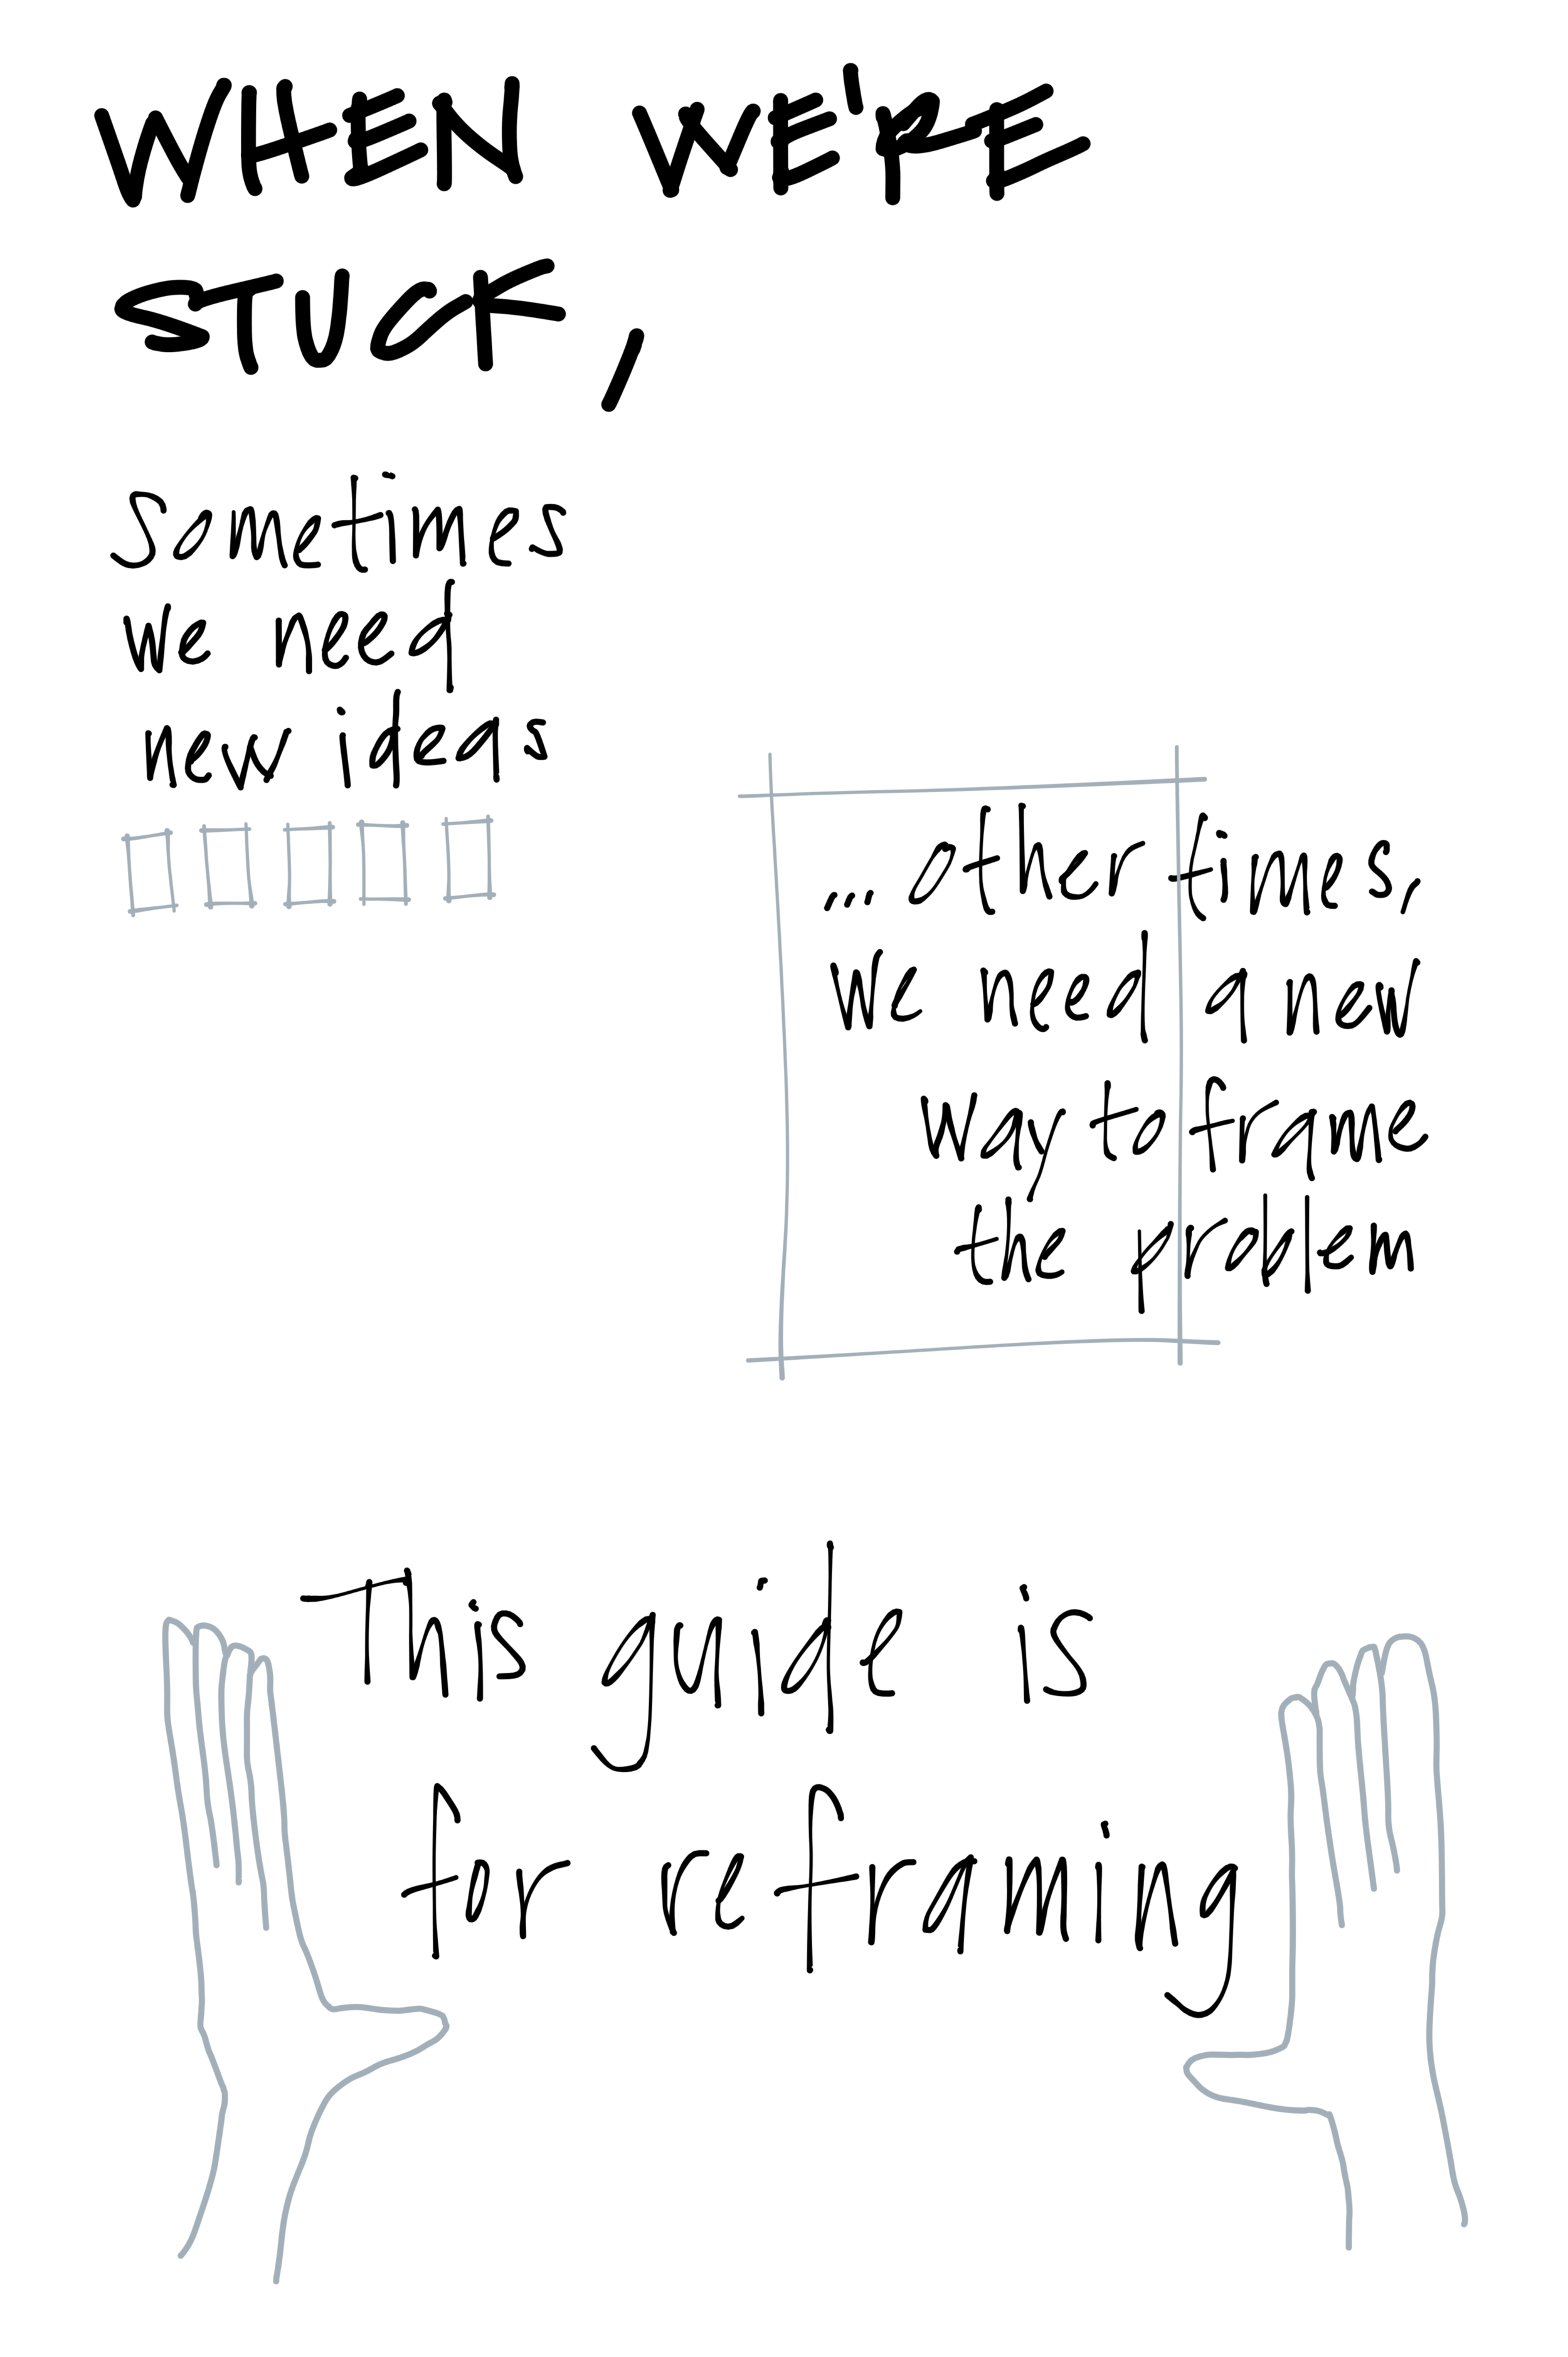 WHEN WE'RE
STUCK,
Sometimes
we need
new ideas
... other times,
we need a new
way to frame
the problem
This guide is
for reframing